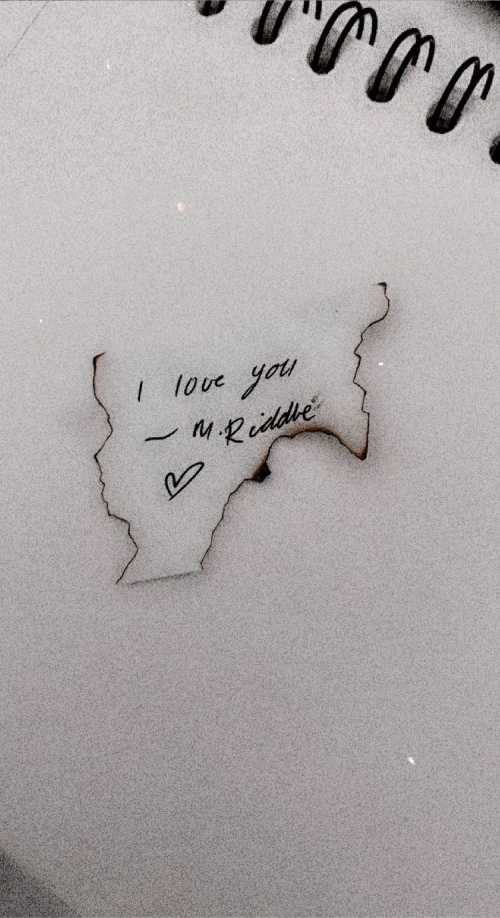 I love you
— M.Riddle
♡